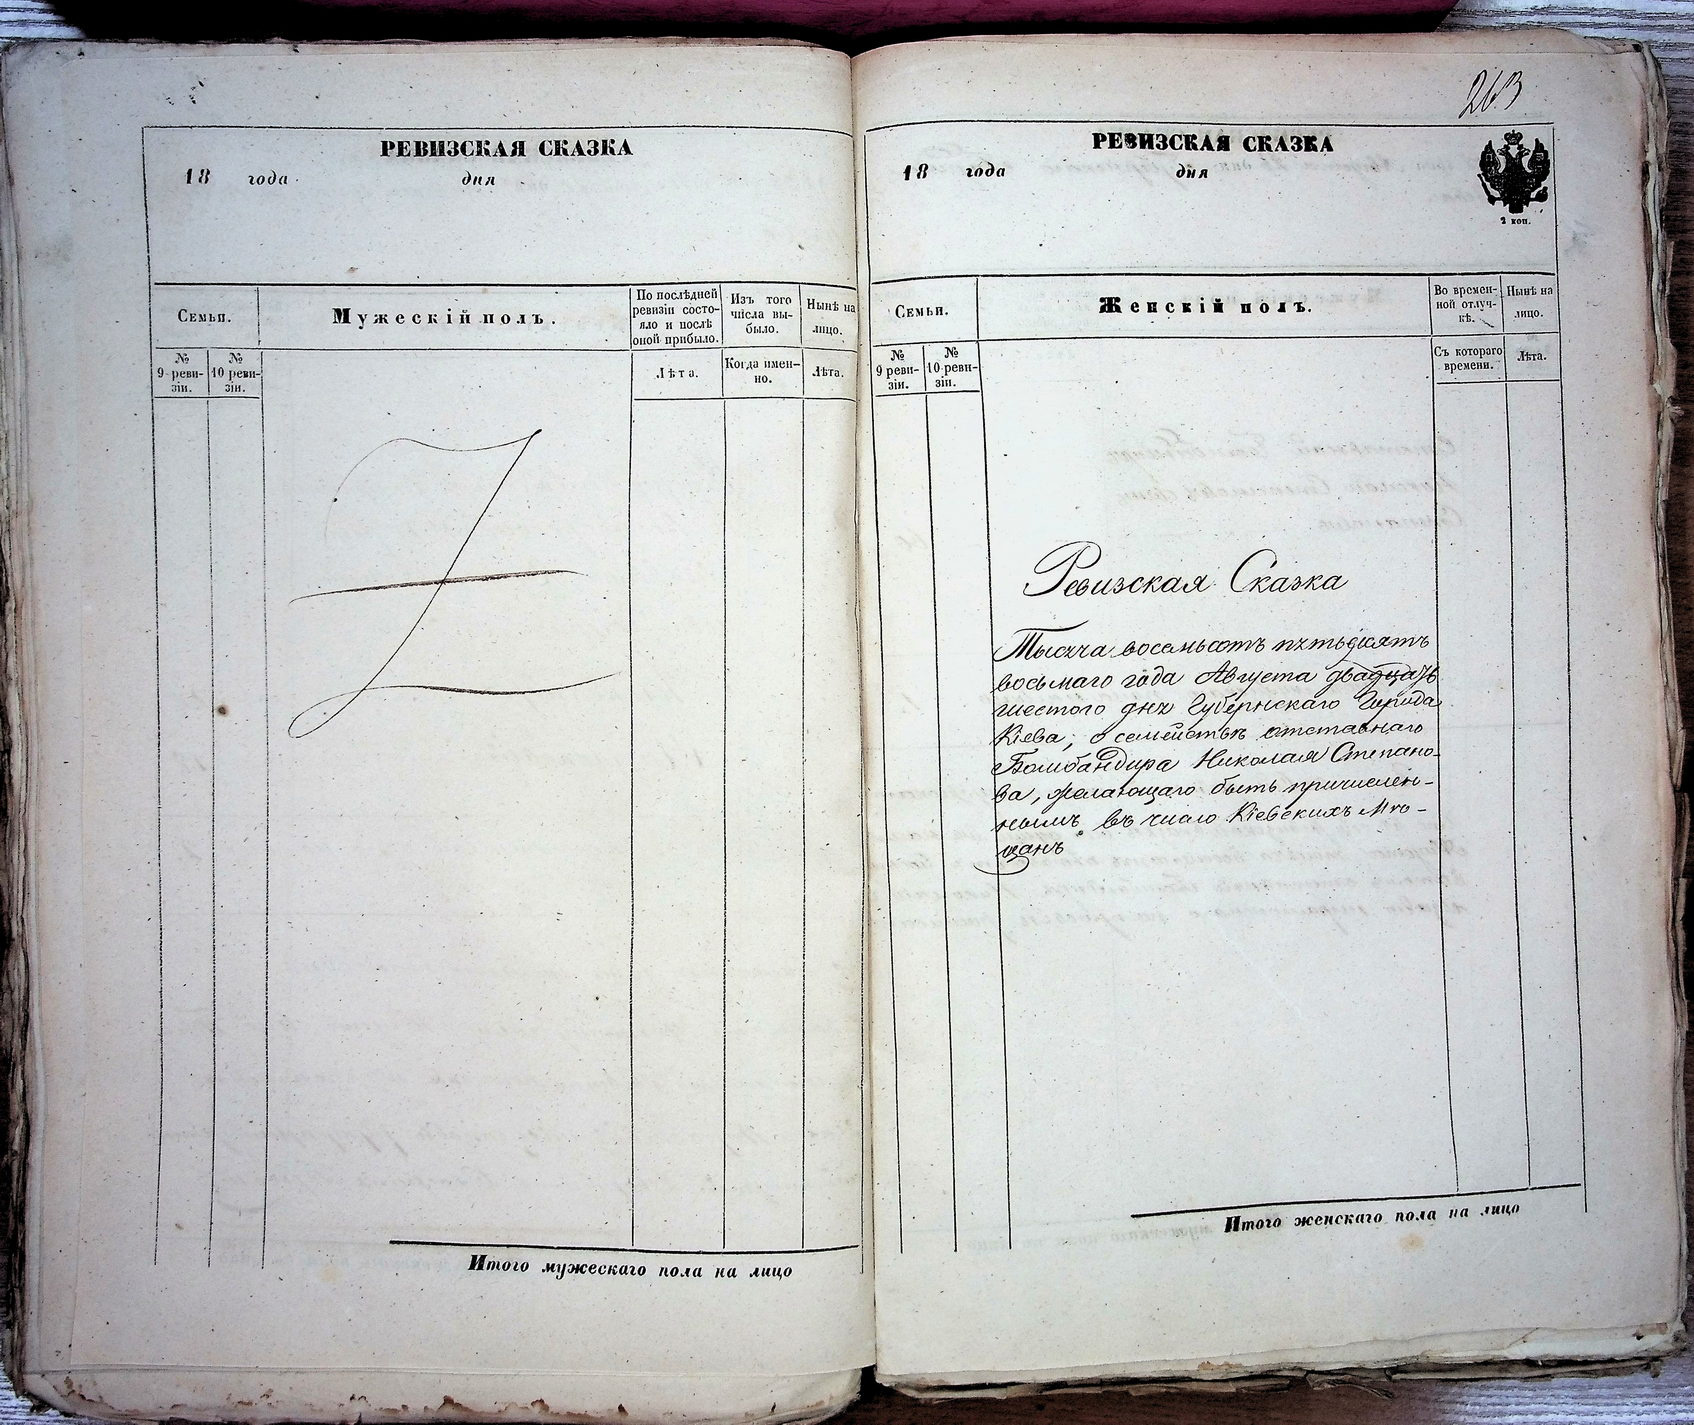 263
РЕВИЗСКАЯ СКАЗКА
18 года дня
Семьи.
Мужескій полъ.
По послѣдней
ревизіи состо-
яло и послѣ
оной прибыло.
Изъ того
числа вы-
было.
Нынѣ на
лицо.
№
9 реви-
зіи.
№
10 реви-
зіи.
Лѣта.
Когда имен-
но.
Лѣта.
Итого мужескаго пола на лицо
РЕВИЗСКАЯ СКАЗКА
18 года дня
2 коп.
Семьи.
Женскій полъ.
Во времен-
ной отлуч-
кѣ.
Нынѣ на
лицо.
№
9 реви-
зіи.
№
10 реви-
зіи.
Съ котораго
времени.
Лѣта.
Ревизская Сказка
Тысяча восемьсотъ пятьдесятъ
восьмаго года Августа двадцать
шестого дня Губернскаго Города
Кіева, о семействѣ отставнаго
Бомбандира Николая Степано-
ва, желающаго быть причислен-
нымъ въ число Кіевскихъ Мѣ-
щанъ
Итого женскаго пола на лицо